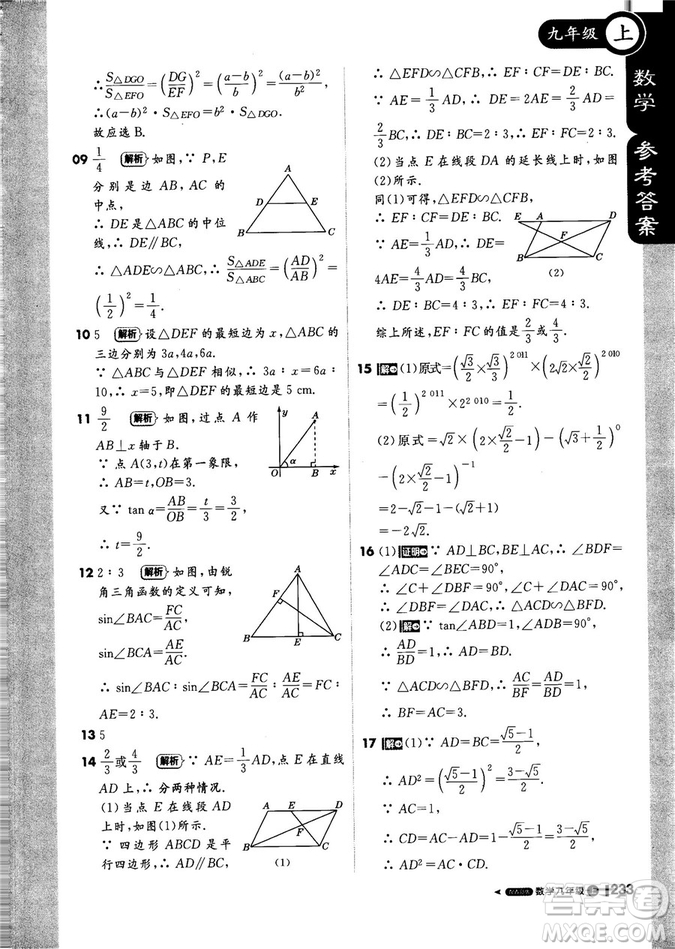 九年级 上
数学 参考答案
∴ S△DGO/S△EFO = (DG/EF)² = ((a-b)/b)² = (a-b)²/b²,
∴(a-b)²·S△EFO=b²·S△DGO.
故应选 B.
09 1/4 解析 如图,∵P,E
分别是边 AB,AC 的
中点,
∴ DE 是△ABC 的中位
线,∴ DE∥BC,
∴ △ADE∽△ABC,∴ S△ADE/S△ABC = (AD/AB)²
= (1/2)² = 1/4.
10 5 解析 设△DEF 的最短边为 x,△ABC 的
三边分别为 3a,4a,6a.
∵ △ABC 与△DEF 相似,∴ 3a∶x=6a∶
10,∴ x=5,即△DEF 的最短边是 5 cm.
11 9/2 解析 如图,过点 A 作
AB⊥x 轴于 B.
∵ 点 A(3,t)在第一象限,
∴ AB=t,OB=3.
又∵ tan α=AB/OB=t/3=3/2,
∴ t=9/2.
y A O α B x
12 2∶3 解析 如图,由锐
角三角函数的定义可知,
sin∠BAC=FC/AC,
sin∠ABC=AE/AC.
∴ sin∠BAC∶sin∠ABC=FC∶
AE=2∶3.
A F B E C
13 5
14 2/3或4/3 解析 ∵ AE=1/3AD,点 E 在直线
AD 上,∴ 分两种情况.
(1)当点 E 在线段 AD
上时,如图(1)所示.
∵ 四边形 ABCD 是平
行四边形,∴ AD∥BC,
A E D F B C
(1)
∴ △EFD∽△CFB,∴ EF∶CF=DE∶BC.
∵ AE=1/3AD,∴ DE=2AE=2/3AD=
2/3BC,∴ DE∶BC=2∶3,∴ EF∶FC=2/3.
(2)当点 E 在线段 DA 的延长线上时,如图
(2)所示.
同(1)可得,△EFD∽△CFB,
∴ EF∶CF=DE∶BC.
∵ AE=1/3AD,∴ DE=
4AE=4/3AD=4/3BC,
E A D F B C
(2)
∴ DE∶BC=4∶3,∴ EF∶FC=4/3.
综上所述,EF∶FC 的值是2/3或4/3.
15 解 (1)原式=(√3/2×√3/3)^2 011×(2√2×√2/2)^2 010
=(1/2)^2 011×2^2 010=1/2.
(2)原式=√2×√2-(√3+1/2)^0
-(1/2×√2/2)^-1+√2-1
=2-1-(2√2+1)
=-2√2.
16 (1)证明 ∵ AD⊥BC,BE⊥AC,∴ ∠BDF=
∠ADC=∠BEC=90°,
∴ ∠C+∠DBF=90°,∠C+∠DAC=90°,
∴ ∠DBF=∠DAC,∴ △ACD∽△BFD.
(2)解 ∵ tan∠ABD=1,∠ADB=90°,
∴ AD/BD=1,∴ AD=BD.
∵ △ACD∽△BFD,∴ AC/BF=AD/BD=1,
∴ BF=AC=3.
17 解 (1)∵ AD=BC=(√5-1)/2,
∴ AD²=((√5-1)/2)²=(3-√5)/2.
∵ AC=1,
∴ CD=AC-AD=1-(√5-1)/2=(3-√5)/2,
∴ AD²=AC·CD.
数学九年级 上 233